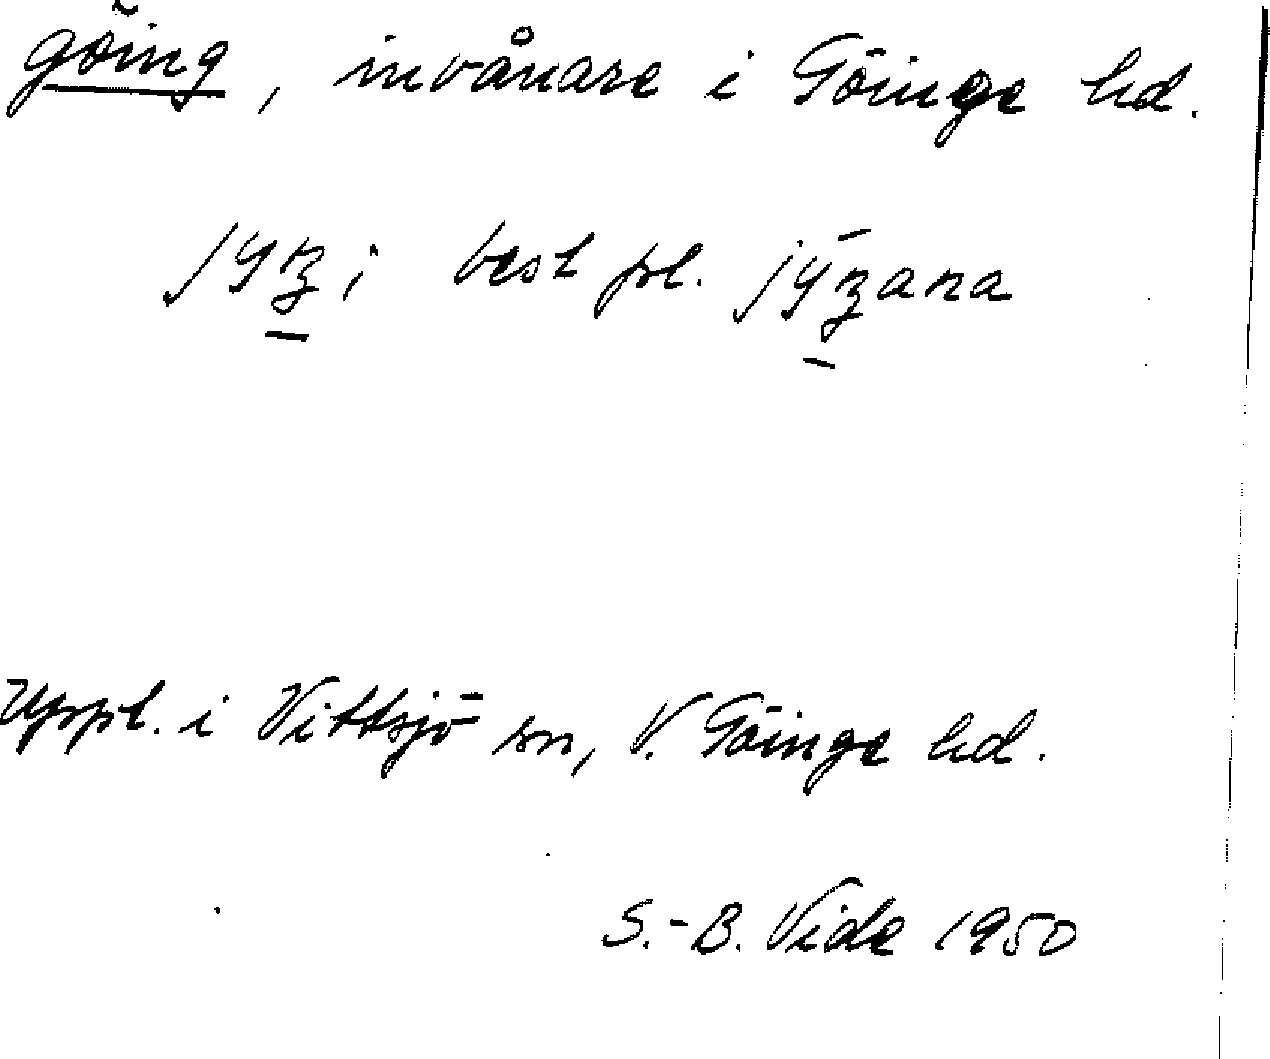 göing, invånare i Göinge hd.
best pl.
Uppt. i Vittsjö sn, V. Göinge hd.
S.-B. Vide 1950